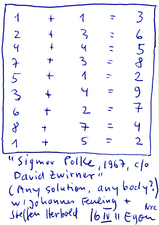 1 + 1 = 3
2 + 3 = 6
4 + 4 = 5
7 + 3 = 8
5 + 1 = 2
3 + 4 = 9
6 + 2 = 7
8 + 7 = 4
1 + 5 = 2
"Sigmar Polke, 1967, c/o
David Zwirner"
(Any solution, anybody?)
w/ Johannes +
Steffen Herbold 16 IV 11 Egon
NYC